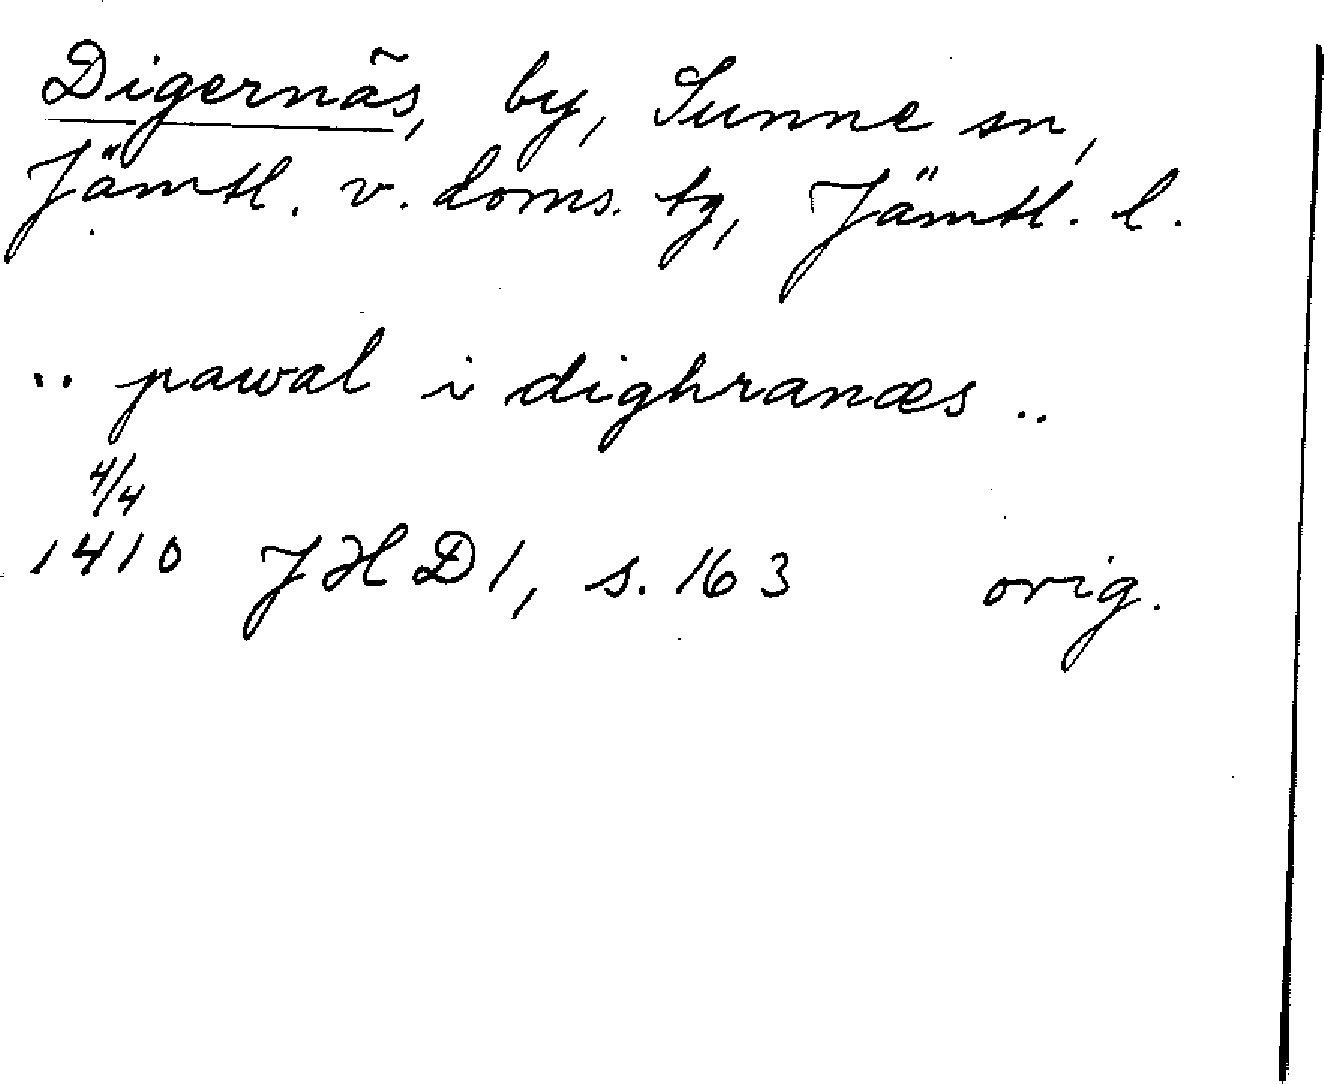 Digernäs, by, Sunne sn,
Jämtl. v. doms. tg, Jämtl. l.
.. pawal i dighranæs ..
4/4
1410 JHD1, s. 163 orig.